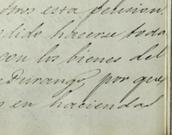 esta peticion
dido hacerse todo
con los bienes del
Durango, por que
en haciendas